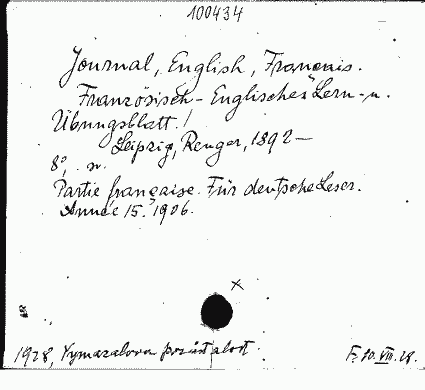 100434
Journal, English, Français.
Französisch-Englisches Lern-u.
Übungsblatt.
Leipzig, Renger, 1892—
8°, n.
Partie française. Für deutsche Leser.
Année 15. 1906.
1928, Vymazalova pozůstalost.
F. 10. VIII. 28.